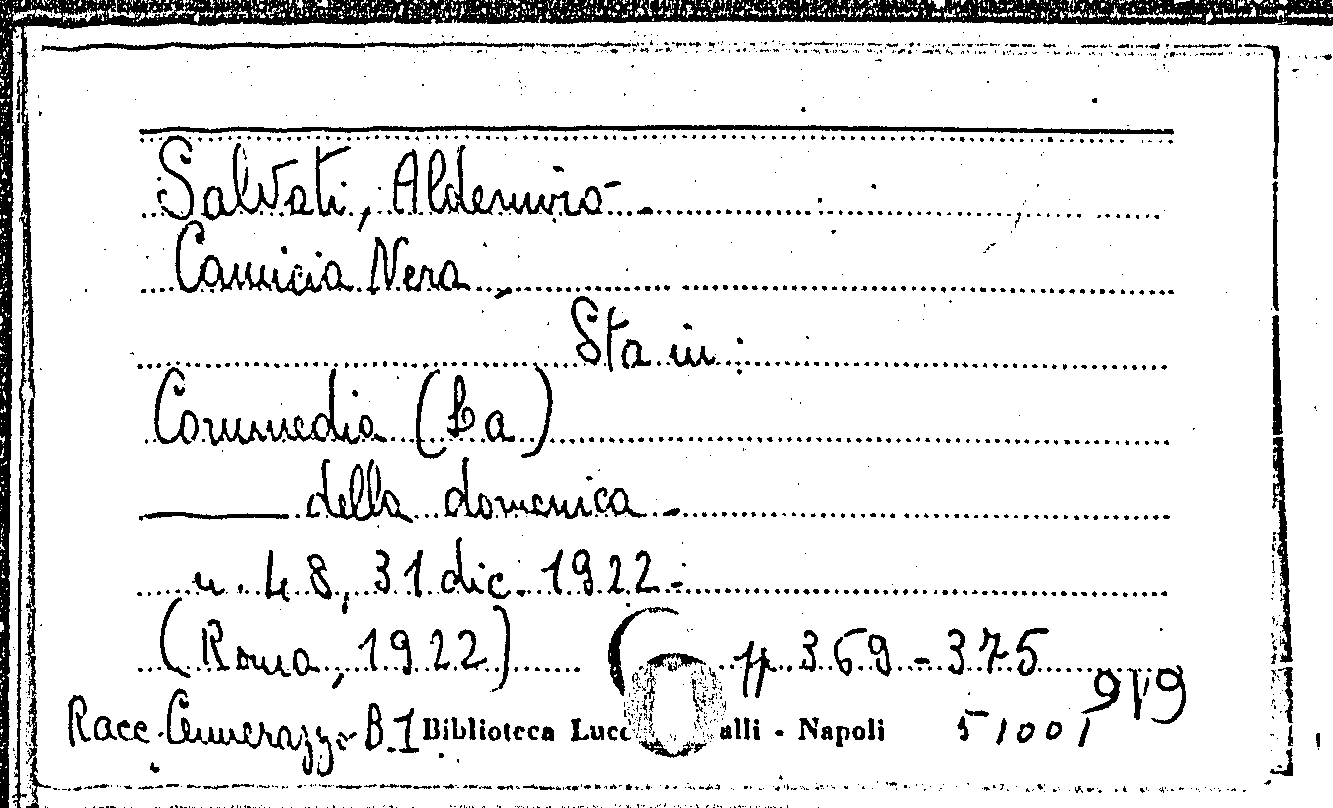 Salvati, Aldemiro -
Camicia Nera -
Sta in:
Commedia (La)
——— della domenica -
n. 48, 31 dic. 1922 -
(Roma, 1922) pp 369-375
Racc. B.1 Biblioteca Lucc alli - Napoli 51001